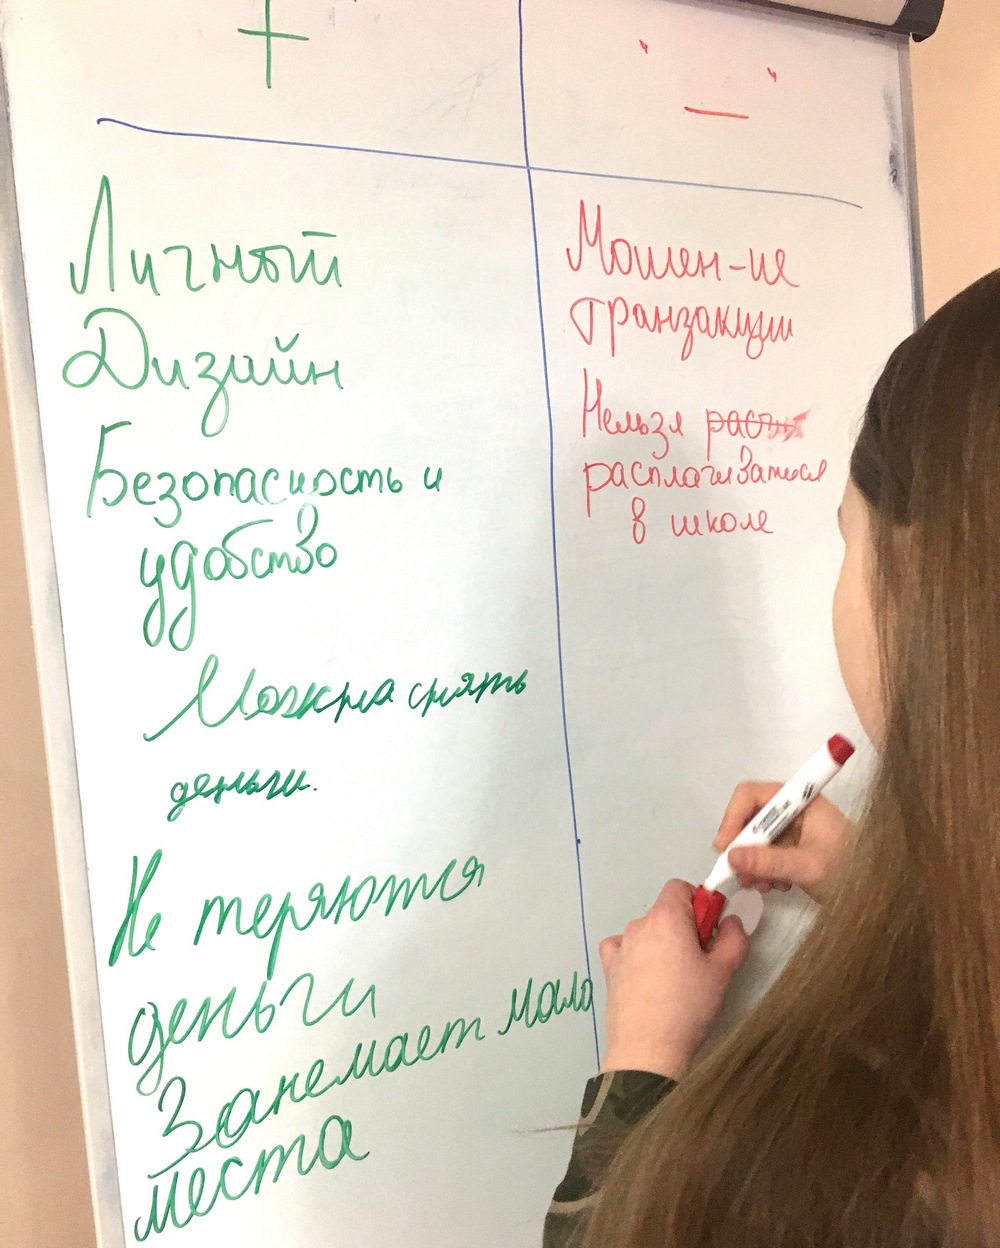 +
"—"
Личный
Дизайн
Безопасность и
удобство
Можно снять
деньги.
Не теряются
деньги
Занемает мало
места
Мошен-ие
транзакции
Нельзя
расплачиваться
в школе